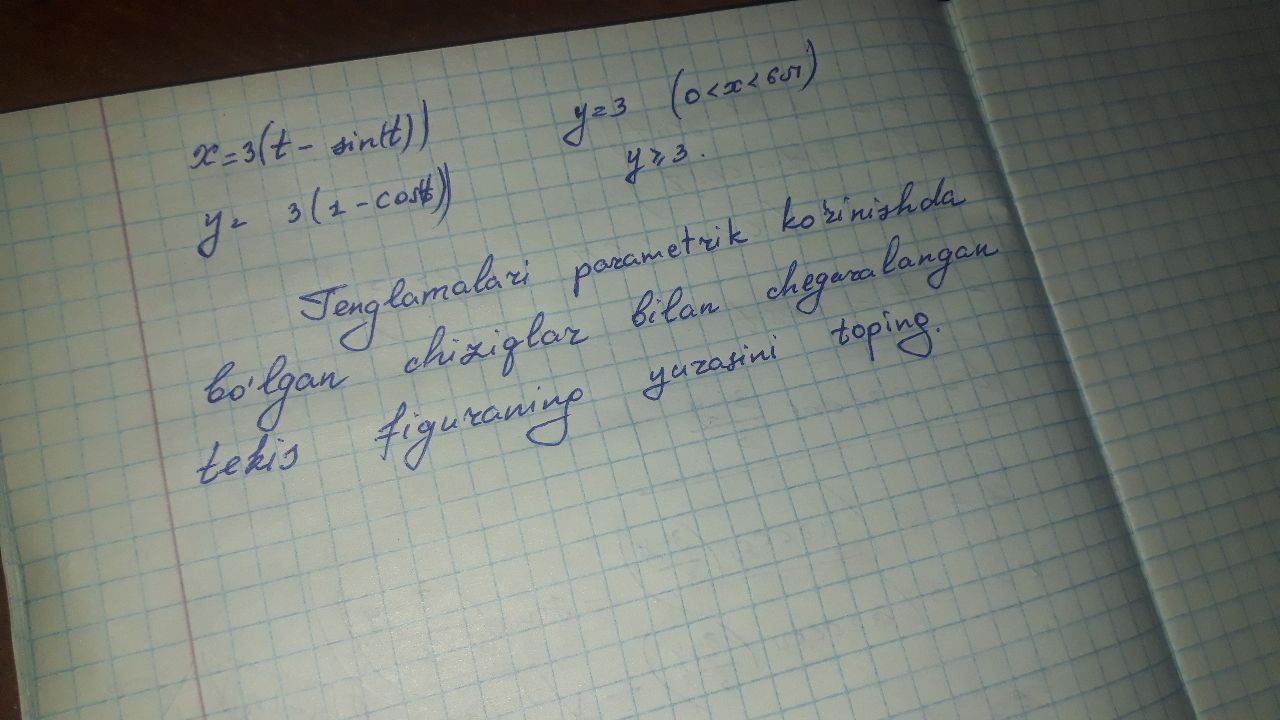 x=3(t- sin(t))    y=3 (0<x<6π)
y= 3(1-cos(t))    y≥3.
Tenglamalari parametrik ko'rinishda
bo'lgan chiziqlar bilan chegaralangan
tekis figuraning yuzasini toping.